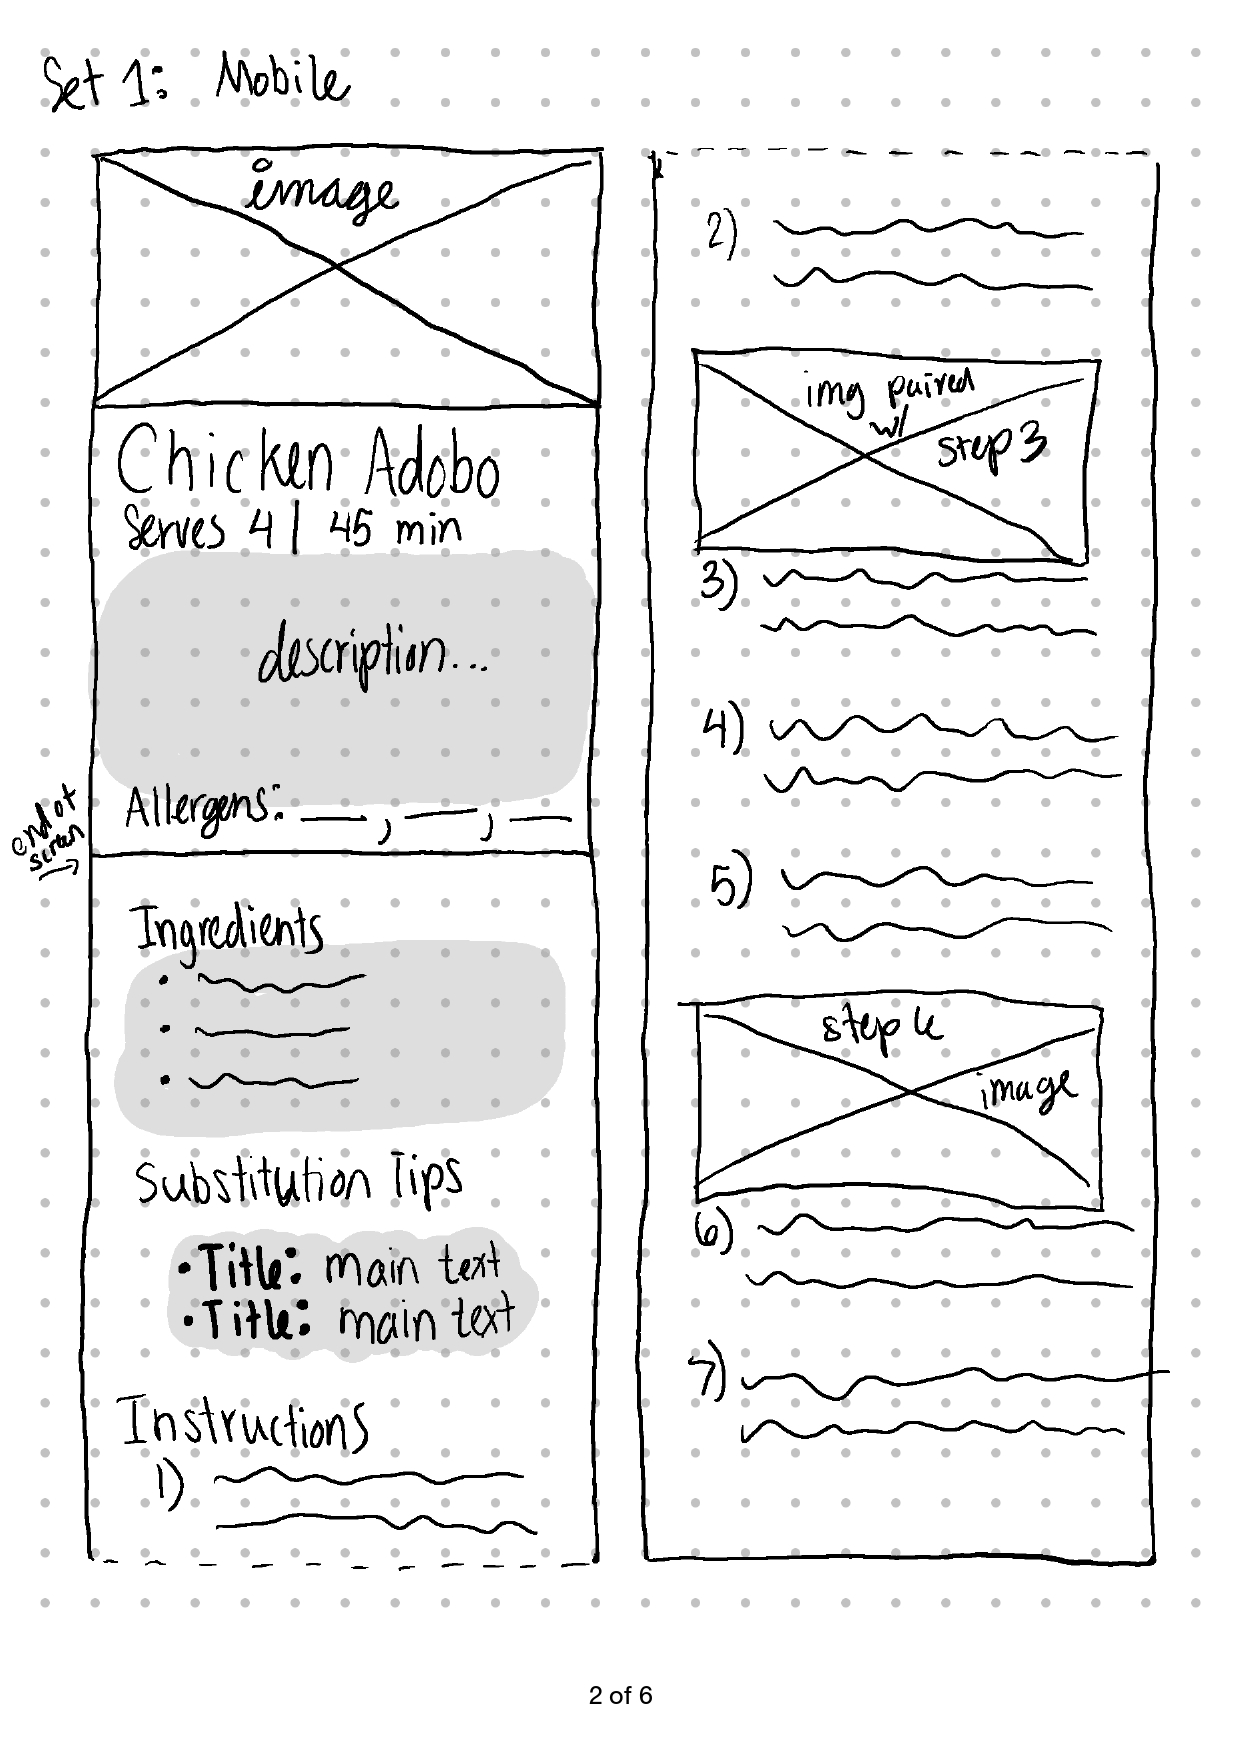 Set 1: Mobile
image
Chicken Adobo
Serves 4 | 45 min
description...
Allergens: __, __, __
end of
screen
→
Ingredients
Substitution Tips
• Title: main text
• Title: main text
Instructions
1)
2)
img paired
w/
step 3
3)
4)
5)
step 6
image
6)
7)
2 of 6